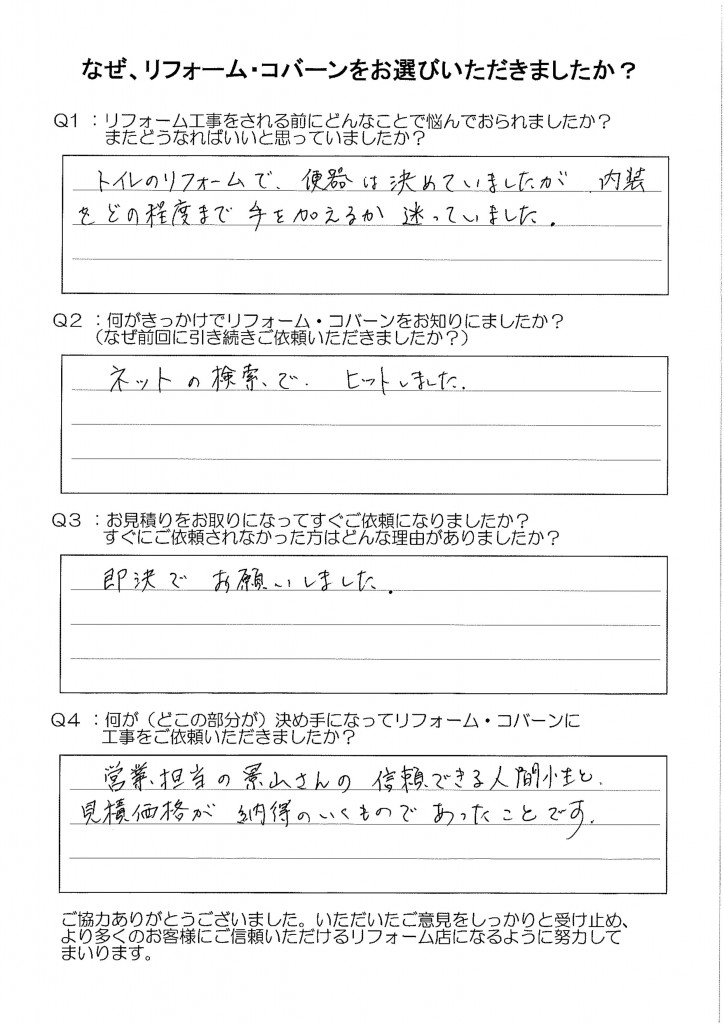 なぜ、リフォーム・コバーンをお選びいただきましたか？
Q1 ：リフォーム工事をされる前にどんなことで悩んでおられましたか？
またどうなればいいと思っていましたか？
トイレのリフォームで、便器は決めていましたが、内装
をどの程度まで手を加えるか迷っていました。
Q2 ：何がきっかけでリフォーム・コバーンをお知りにましたか？
（なぜ前回に引き続きご依頼いただきましたか？）
ネットの検索で、ヒットしました。
Q3 ：お見積りをお取りになってすぐご依頼になりましたか？
すぐにご依頼されなかった方はどんな理由がありましたか？
即決でお願いしました。
Q4 ：何が（どこの部分が）決め手になってリフォーム・コバーンに
工事をご依頼いただきましたか？
営業担当の景山さんの信頼できる人間性と、
見積価格が納得のいくものであったことです。
ご協力ありがとうございました。いただいたご意見をしっかりと受け止め、
より多くのお客様にご信頼いただけるリフォーム店になるように努力して
まいります。